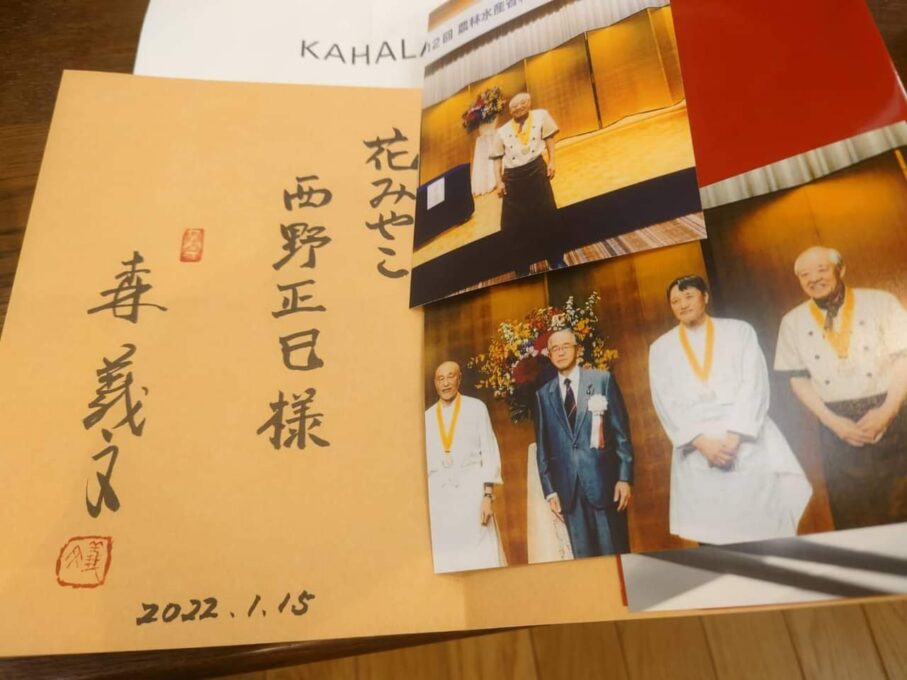 KAHALA
2回 農林水産省
花みやこ
西野正巳様
森義文
2022.1.15